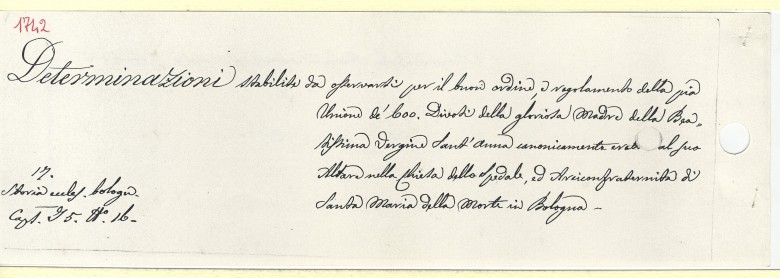 1742
Determinazioni stabilite da osservarsi per il buon ordine, e regolamento della pia
Unione de' 600. Divoti della gloriosa Madre della Bea-
tissima Vergine Sant'Anna canonicamente eret al suo
Altare nella Chiesa dello Spedale, ed Arciconfraternita di
Santa Maria della Morte in Bologna -
17.
Storia eccles. bologn.
Cap. I 5. N.o 16-